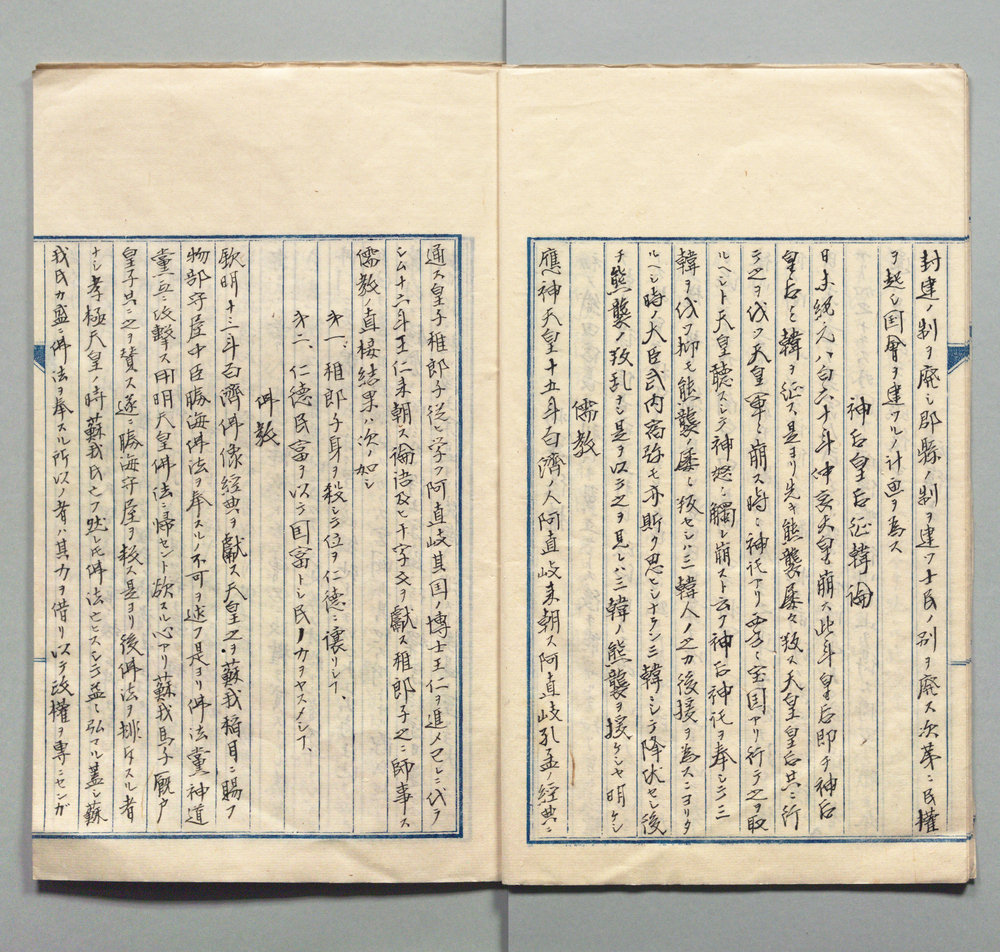 封建ノ制ヲ廃シ郡縣ノ制ヲ建ツ士民ノ別ヲ廃ス次第ニ民權
ヲ起シ国會ヲ建ツルノ計画ヲ為ス
神后皇后征韓論
日本紀元八百六十年仲哀天皇崩ス此年皇后即チ神后
皇后三韓ヲ征ス是ヨリ先キ熊襲屡々叛ス天皇皇后共ニ行
テ之ヲ伐ツ天皇軍ニ崩ス時ニ神託アリ西ニ宝国アリ行テ之ヲ取
ルヘシト天皇聴スシテ神怒ニ觸レ崩スト云フ神后神託ヲ奉シテ三
韓ヲ伐ツ抑モ熊襲ノ屡々叛セシハ三韓人ノ之カ後援ヲ為スニヨリタ
ルヘシ時ノ大臣武内宿弥モ亦斯ク思ヒシナラン三韓ニシテ降伏セシ後
チ熊襲ノ叛乱ナシ是ヲ以テ之ヲ見レハ三韓ノ熊襲ヲ援ケシヤ明ケシ
儒教
應神天皇十五年百濟ノ人阿直岐来朝ス阿直岐孔孟ノ経典ニ
通ス皇子稚郎子従ヒ学フ阿直岐其国ノ博士王仁ヲ進メ己レニ代ラ
シム十六年王仁来朝ス論語及ヒ千字文ヲ獻ス稚郎子之ニ師事ス
儒教ノ直接結果ハ次ノ如シ
才一、稚郎子身ヲ殺シテ位ヲ仁徳ニ讓リシ事、
才二、仁徳民富ヲ以テ国富トシ民ノ力ヲヤスメシ事、
佛教
欽明十三年百濟佛像経典ヲ獻ス天皇之ヲ蘇我稲目ニ賜フ
物部守屋中臣勝海佛法ヲ奉スルノ不可ヲ述フ是ヨリ佛法黨神道
黨互ニ攻撃ス用明天皇佛法ニ帰セント欲スル心アリ蘇我馬子厩戸
皇子共ニ之ヲ賛ス遂ニ勝海守屋ヲ殺ス是ヨリ後佛法ヲ排斥スル者
ナシ孝極天皇ノ時蘇我氏亡フ然レ氏佛法亡ヒスシテ益々弘マル蓋シ蘇
我氏カ盛ニ佛法ヲ奉スル所以ノ者ハ其力ヲ借リ以テ政權ヲ専ニセンガ